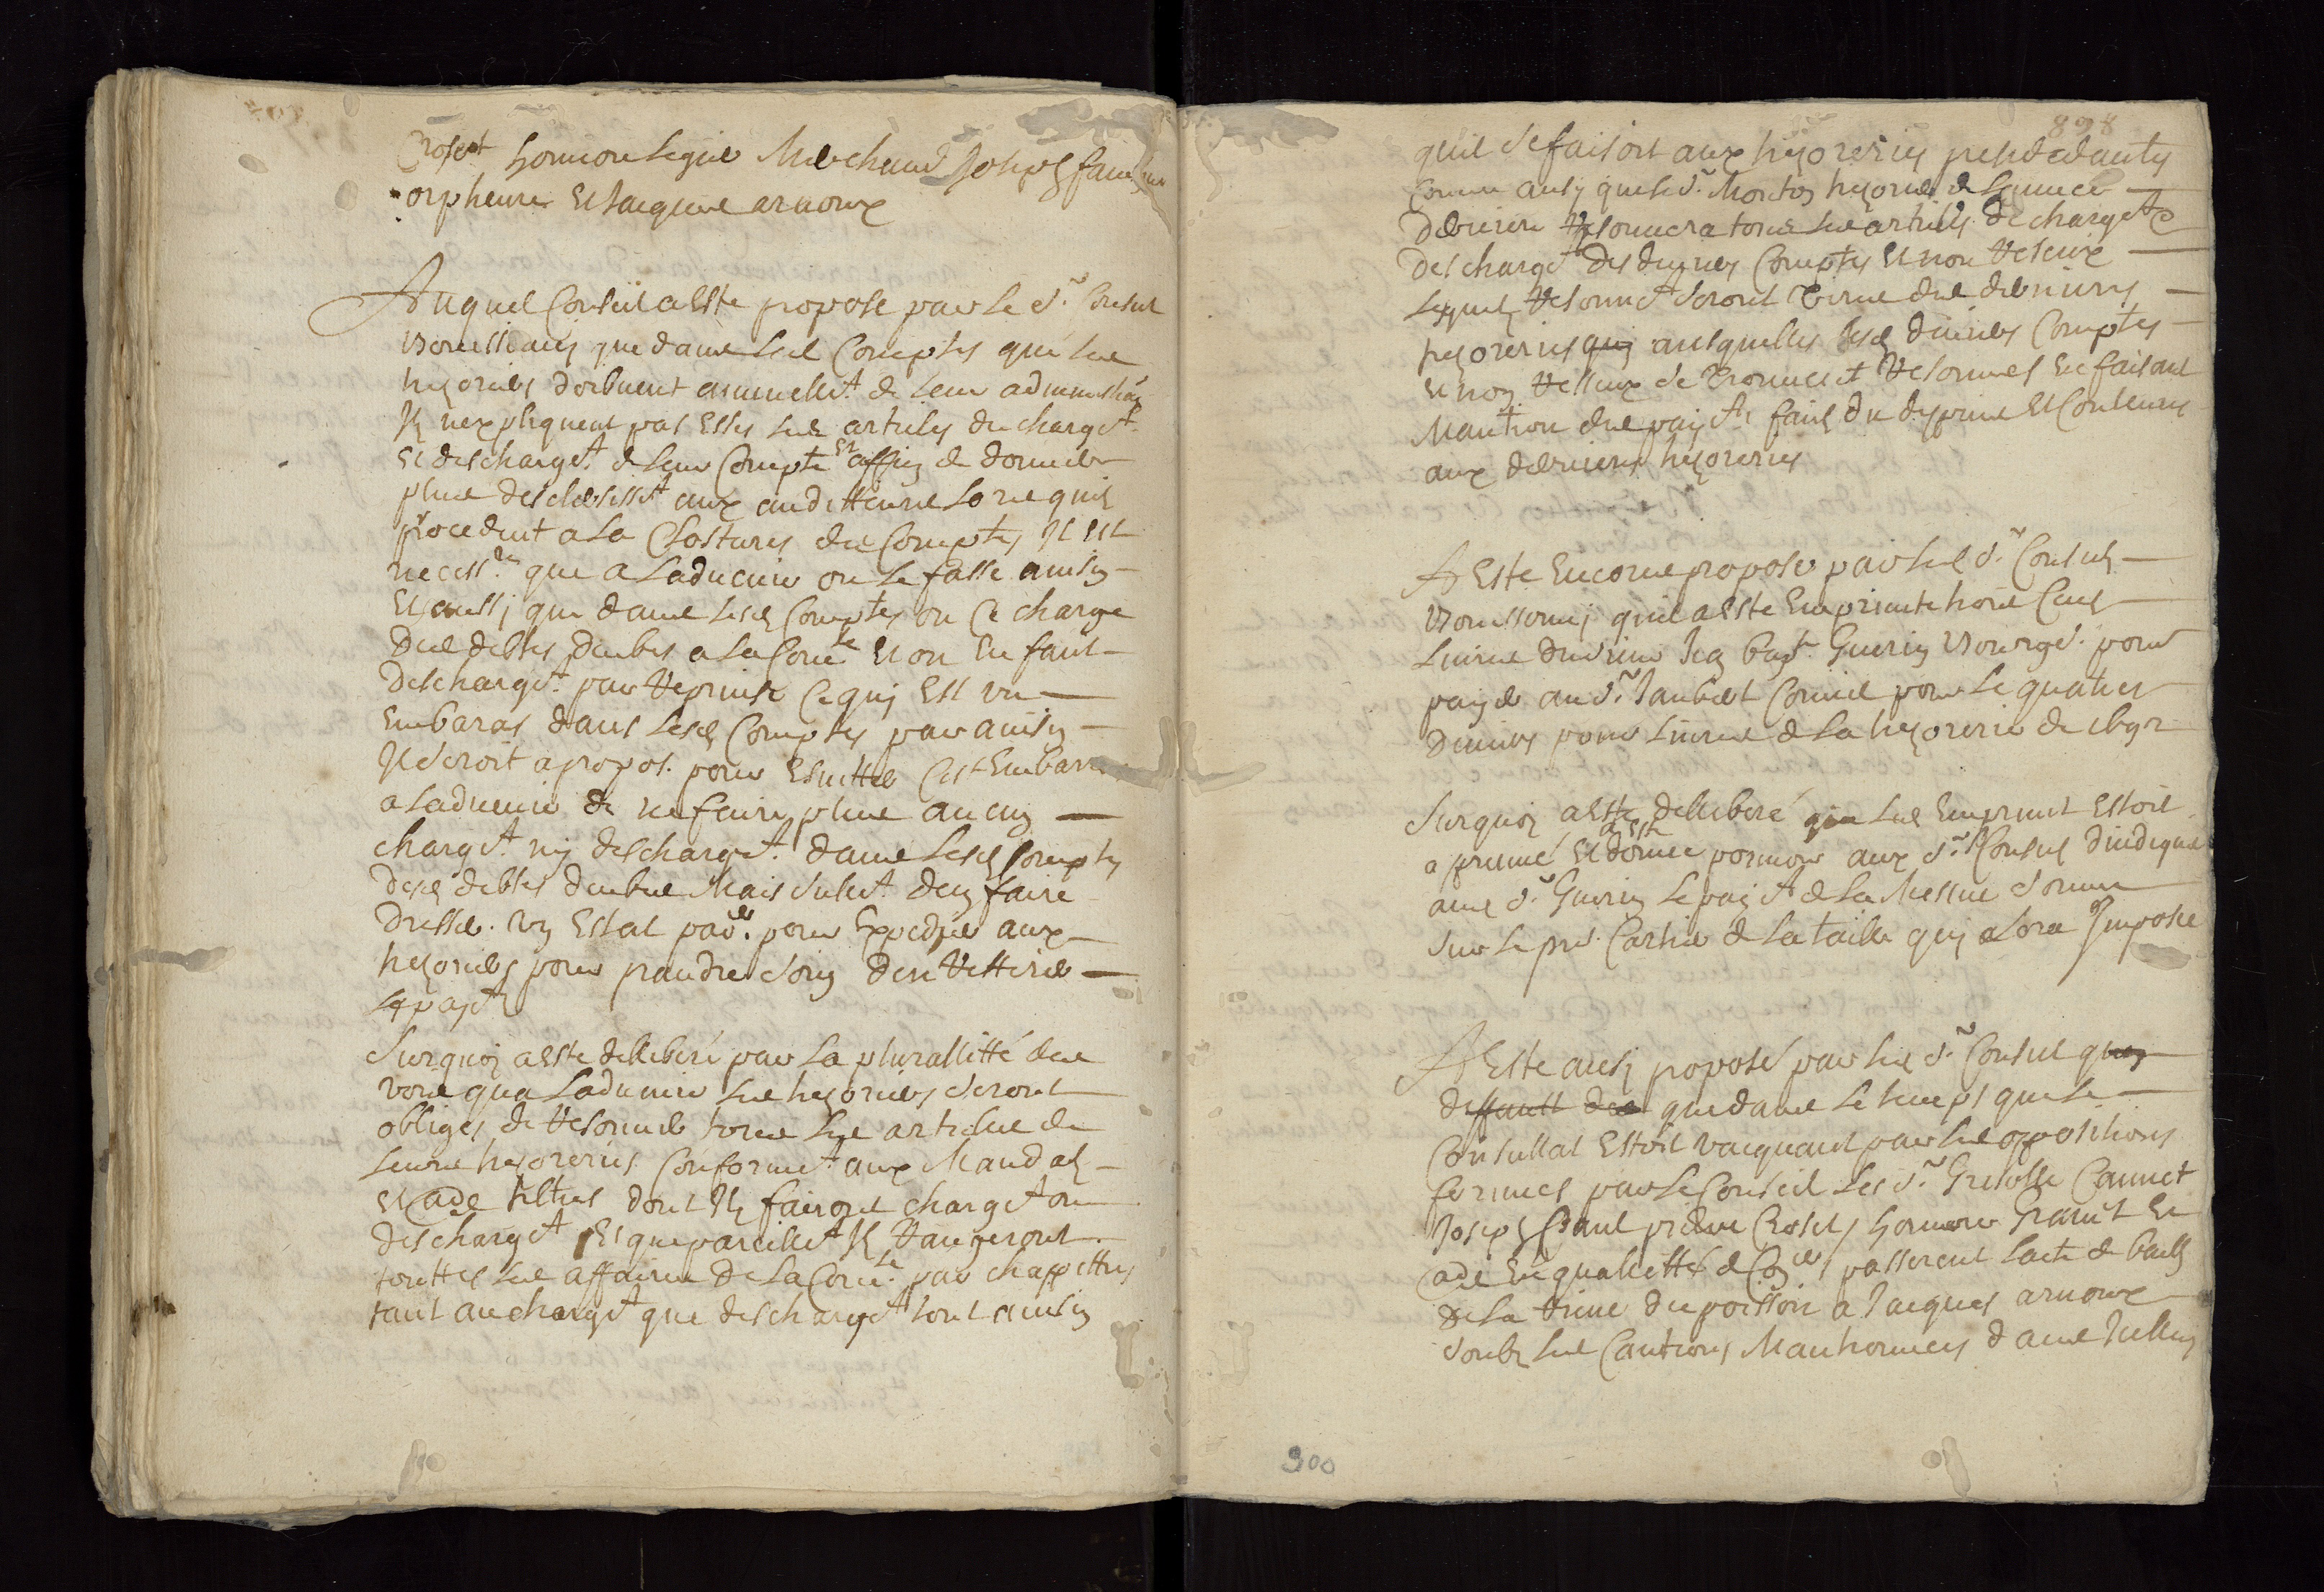 Croset honnore Legier Marchand Joseph
orpheuvre Et Jacques arnoux
Auquel Conseil a Esté propose par le Sr. Consul
que dans les Comptes que les
thezoriers doibvent annuellemt. de leur administraõn
Ils nexpliquent pas Assés les articles du chargemt.
Et deschargemt. de leur Compte Et affin de donner
plus desclersissemt aux auditteurs Lors quils
procedent a La Closture des Comptes Il Est
necessre. que a Laduenir on le fasse ainsin
Et aussi que dans lesd Comptes on Ce charge
Des debtes deubes a La Comté Et on En fait
Deschargemt. par Reprinse Ce quj Est vn
Embaras dans Lesd Comptes par ainsin
Il seroit apropos. pour Esvitter Cest Embaras
a Laduenir de ne faire plus aucun
chargemt. nj deschargemt. dans Lesd Comptes
Desd debtes deubes Mais sulemt. den faire
Dresser. vn Estat par. pour Expedier aux
thezoriers pour prandre soin den Rettirer
Le payemt
Surquoj a Esté delliberé par La plurallitté des
voix qua Laduenir les thezoriers seront
obliges de Resoumer tous Les articles de
Leurs thezoreries Conformemt. aux Mandats
Et aũe tiltres dont Ils fairont chargemt ou
deschargemt Et que pareillemt Ils Rangeront
touttes les affaires de La Comté. par chappittres
tant au chargemt que deschargemt tout ainsin
898
quil se faisoit aux thezoreries presedantes
Comme ausj que le Sr. Monton thezorier de Lannee
Derniere Resoumera tous les articles de chargemt Et
deschargemt des derniers Comptes Et non Reseux
Lesquels Resoumemt seront tirés des dernieres
thezoreries quj ausquelles lesd derniers Comptes
Et non Resseux se trouueront Resoumes En faisant
Mantion des payemts faits du despuis Et Contenus
aux dernieres thezoreries
A Esté Encore proposé par les Sr. Consuls
quil a Esté Emprunté trois Cens
Liures du sieur Jea Bapt. Guerin Bourgs. pour
payer au Sr. Jaubert Commis pour Le quatres
Deniers pour Liure de La thezorerie de
Surquoj a Esté delliberé que Led Emprunt Estoit
aprouué Et a Esté donné pouuoir aux Sr. Consuls dindiquer
aud Sr. Guerin Le payemt de La Mesme Somme
Sur Le pr. Cartier de La taille quj alors Imposée
A Esté ausj proposé par les Sr. Consuls
deffault des que dans Le temps que le
Consullat Estoit vacquant par les oppositions
formees par Le Conseil Les Sr. Grisolle Cannet
Joseph Pierre Croset honnore Et
En quallittés de passerent Lacte de baill
De La Rieue du poisson a Jacques arnoux
Soubz les Cautions Manthonnees dans Icelluy
300